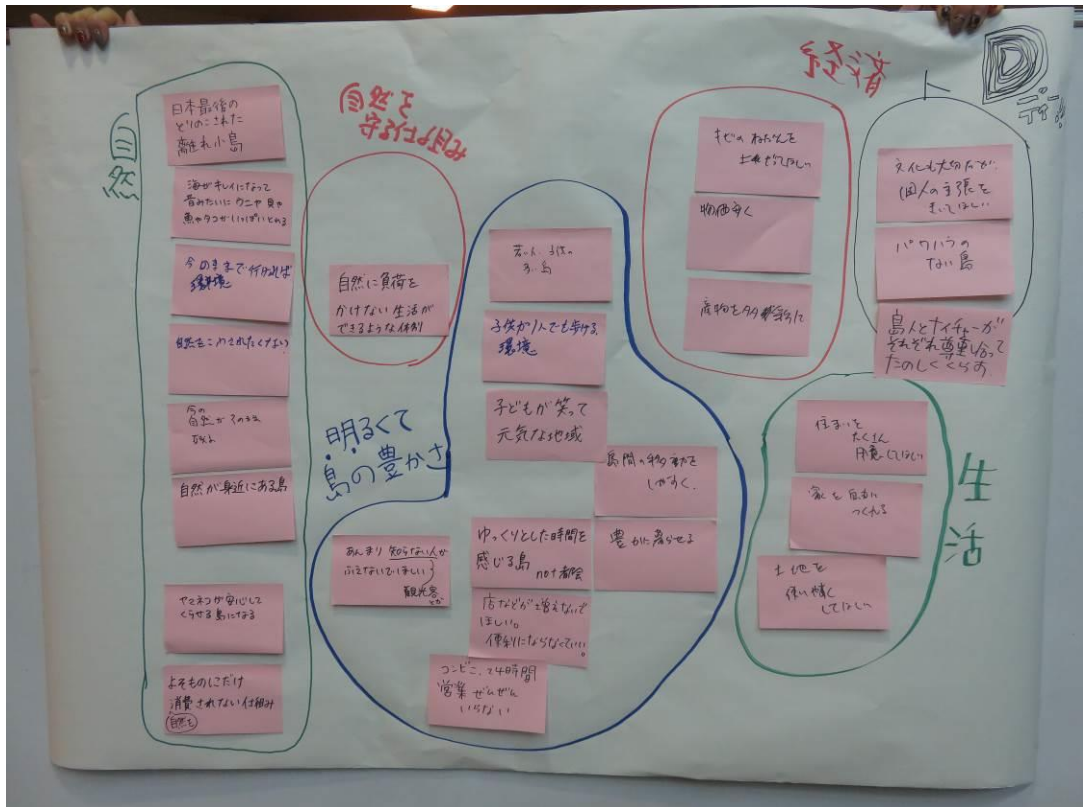 日本最後の
とりのこされた
離れ小島
海がキレイになって
昔みたいにウニや貝や
魚やタコがいっぱいとれる
今のままで行ければ
環境
自然をこわされたくない
今の
自然がそのまま
自然が身近にある島
ヤマネコが安心して
くらせる島になる
よそものにだけ
消費されない仕組み
自然を
自然を
守る仕組み
自然に負荷を
かけない生活が
できるような体制
明るくて
島の豊かさ
若い人、子供の
多い島
子供が1人でも歩ける
環境
子どもが笑って
元気な地域
島間の移動を
しやすく
ゆっくりとした時間を
感じる島
not 都会
豊かに暮らせる
あんまり知らない人が
ふえないでほしい
観光客
とか
店などが増えないで
ほしい。
便利にならなくていい。
コンビニ、24時間
営業ぜんぜん
いらない
経済
キビのねだんを
上げてほしい
物価安く
産物を多彩に
ト
D
ディー
文化も大切だが、
個人の主張を
きいてほしい
パワハラの
ない島
島人とナイチャーが
それぞれ尊重し合って
たのしくくらす
生活
住まいを
たくさん
用意してほしい
家を自由に
つくれる
土地を
使い易く
してほしい